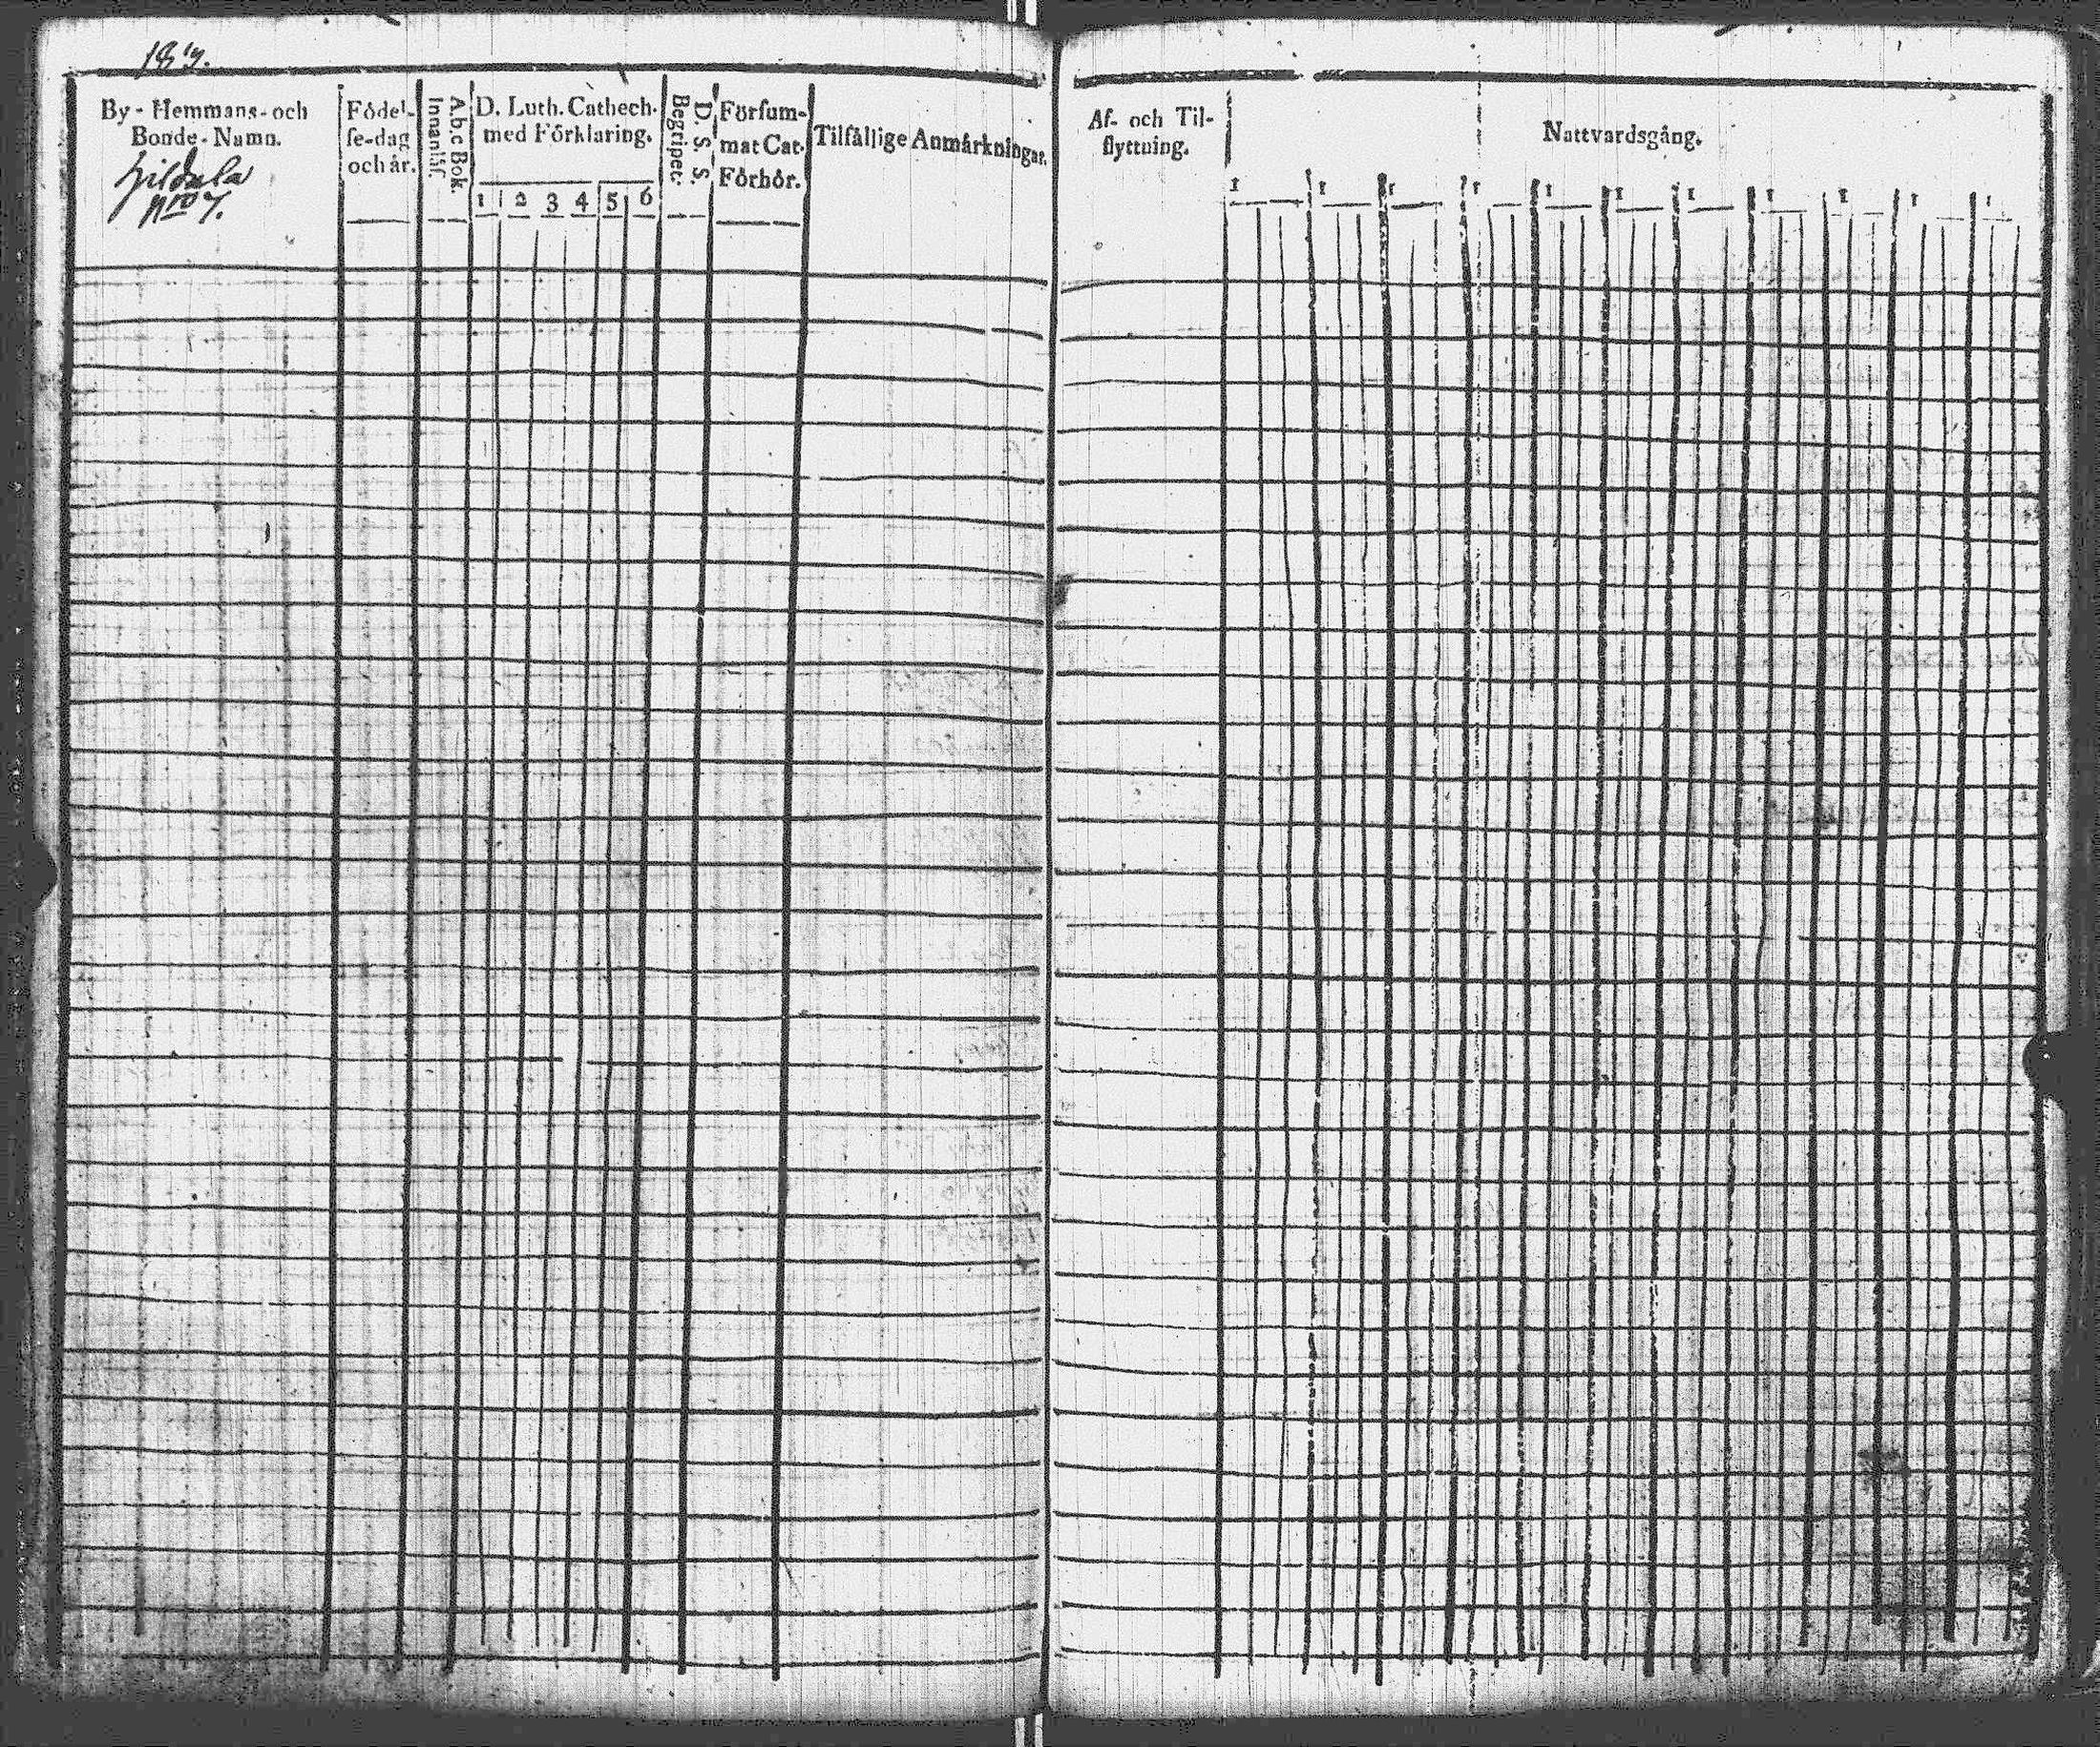 187.
By - Hemmans - och
Bonde - Namn.
Hildala
nro 7.
Födel-
se-dag
och år.
A.b.c Bok.
Innanläs.
D. Luth. Cathech.
med Förklaring.
1 2 3 4 5 6
D. S. S.
Begripet.
Försum-
mat Cat.
Förhör.
Tilfällige Anmärkningar.
Af- och Til-
flyttning.
Nattvardsgång.
1 1 1 1 1 1 1 1 1 1 1